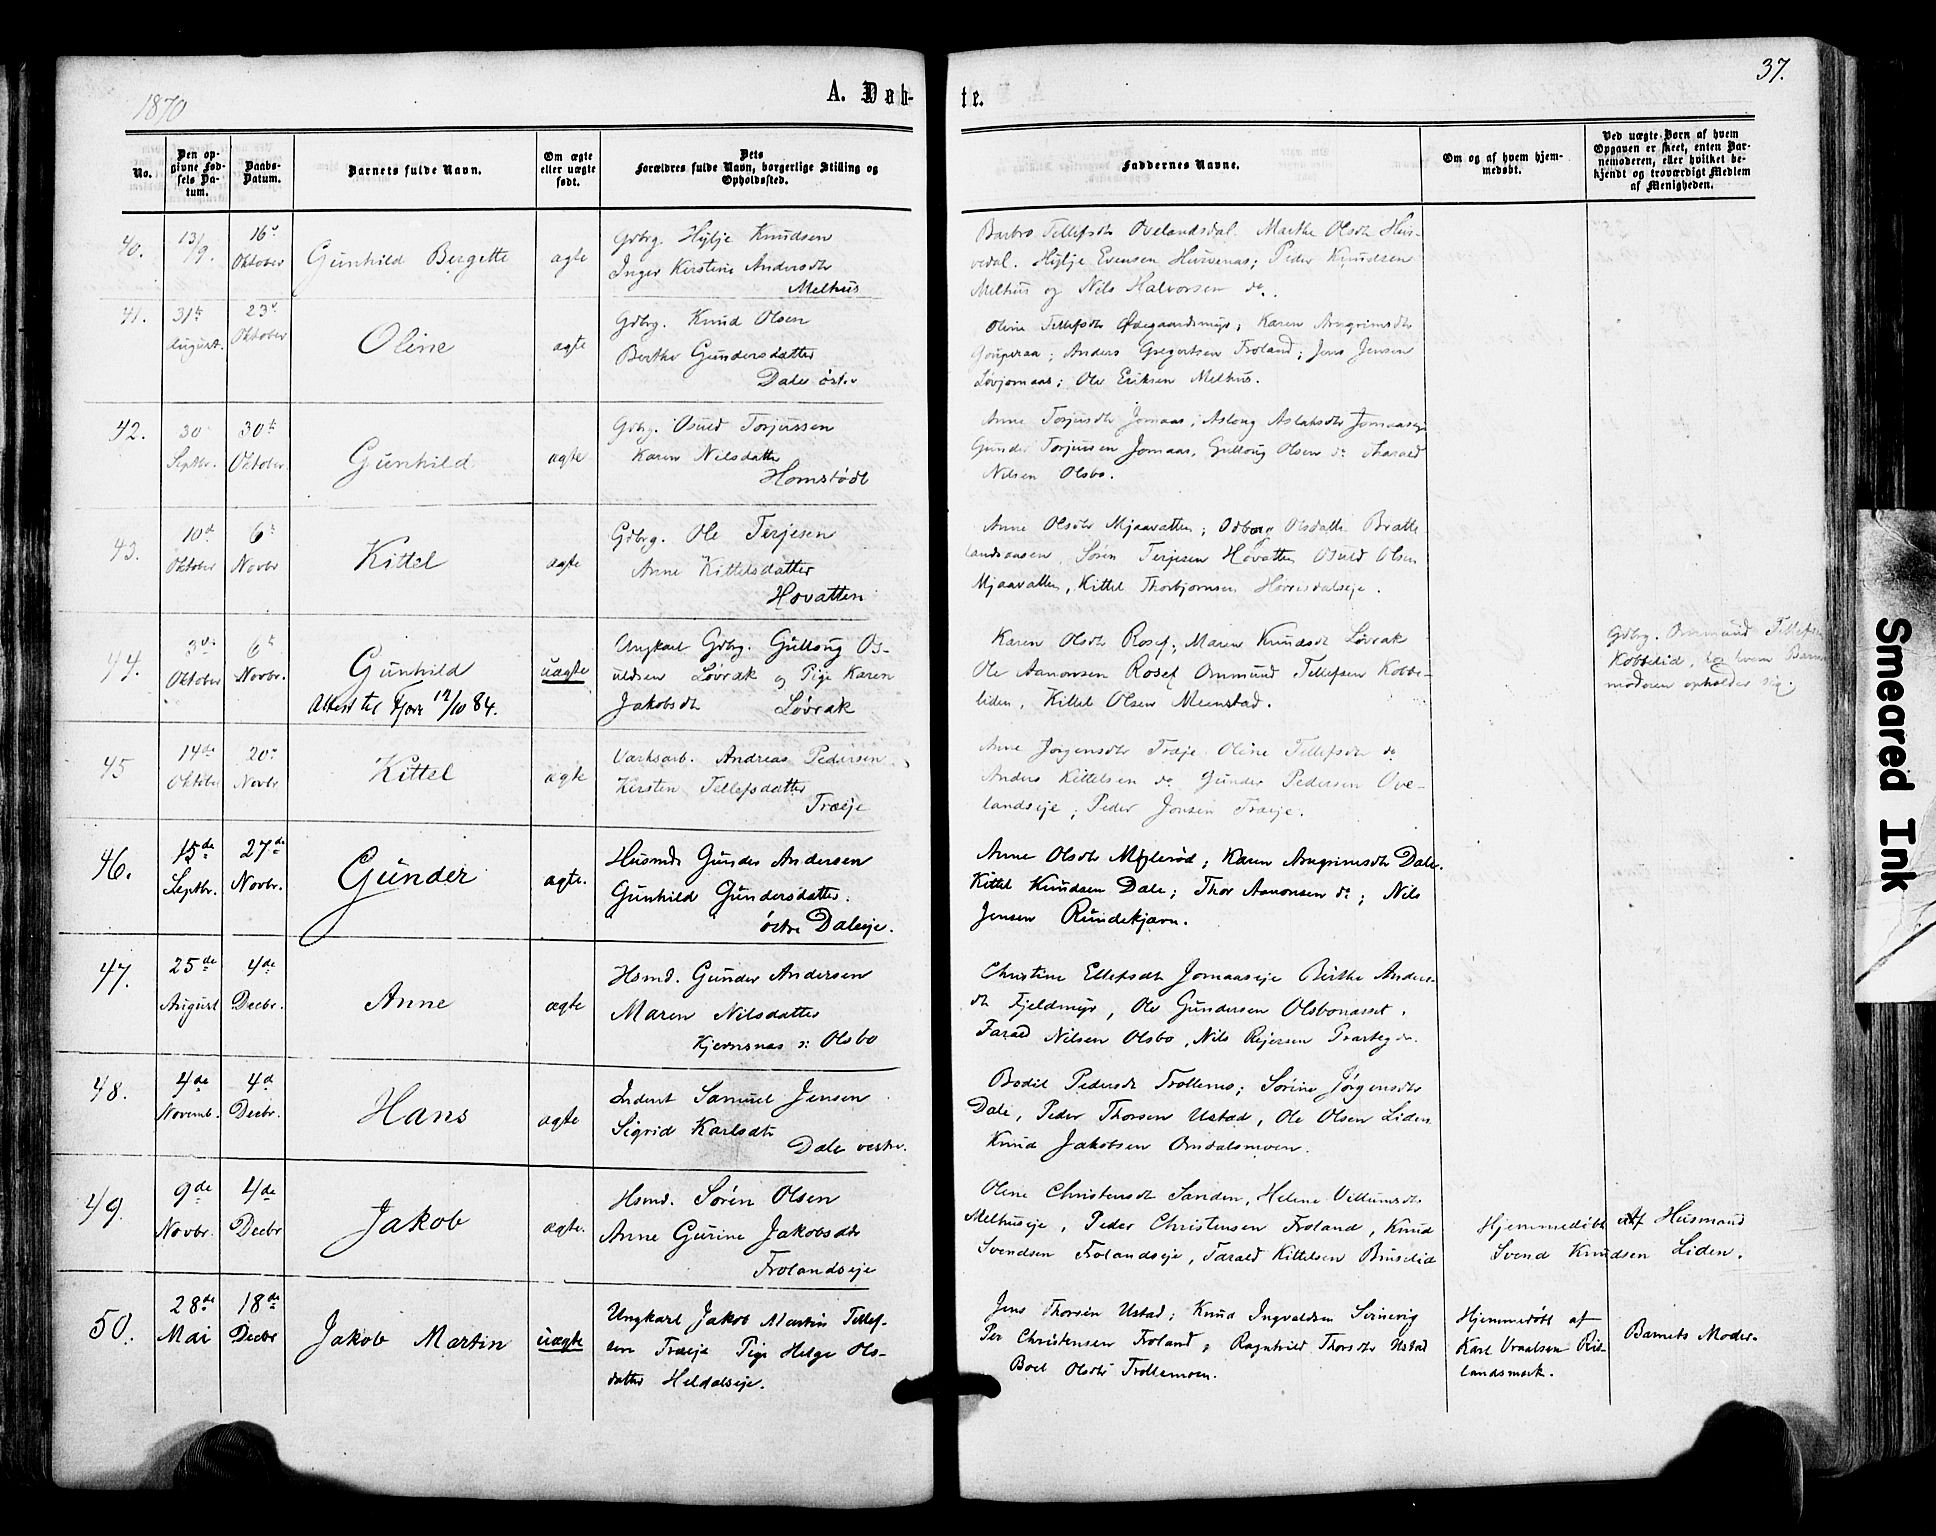 1870
A. Døb-
te.
37.
No.
Den op-
givne Fød-
sels Da-
tum.
Daabs-
Datum.
Barnets fulde Navn.
Om ægte
eller uægte
født.
Dets
Forældres fulde Navn, borgerlige Stilling og
Opholdssted.
Faddernes Navne.
Om og af hvem hjem-
medøbt.
Ved uægte Børn af hvem
Opgaven er skeet, enten Bar-
nemoderen, eller hvilket be-
kjendt og troværdigt Medlem
af Menigheden.
40.
13/9.
16de
Oktober
Gunhild Bergette
ægte
Gdbrg. Hylje Knudsen
Inger Kirstine Andersdtr
Melhus
Barbro Tellefsdtr Ovelandsdal. Marthe Olsdtr Hur-
vedal. Hylje Evensen Hurvenæs; Peder Knudsen
Melhus og Nils Halvorsen do.
41.
31te
August.
23de
Oktober
Oline
ægte
Gdbrg. Knud Olsen
Berthe Gundersdatter
Dale østre
Oline Tellefsdtr Ødegaardsmyr; Karen Arngrimsdtr
Anders Gregertsen Froland; Jens Jensen
Løvjomaas; Ole Eriksen Melhus.
42.
30
Septbr.
30te
Oktober
Gunhild
ægte
Gdbrg. Osuld Torjussen
Karen Nilsdatter
Homstødt
Anne Torjusdtr Jomaas; Aslaug Aslaksdtr Jomaaseje
Gunder Torjussen Jomaas, Gullaug Olsen do Tharald
Nilsen Olsbo.
43.
10de
Oktober
6te
Novbr
Kittel
ægte
Gdbrg. Ole Terjesen
Anne Kittelsdatter
Høvatten
Anne Olsdtr Mjaavatten; Odborg Olsdatter Bratte
landsaasen, Søren Terjesen Høvatten Osuld Olsen
Mjaavatten, Kittel Thorbjørnsen
44.
3die
Oktober
6te
Novbr.
Gunhild
Attest til Fjære 12/10 84.
uægte
Ungkarl Gdbrg. Gullaug Os-
uldsen Løvrak og Pige Karen
Jakobsdtr Løvrak
Karen Olsdtr Rosef; Maren Knudsdtr Løvrak
Ole Aanonsen Rosef Ommund Tellefsen Kobbe-
liden, Kittel Olsen Meenstad.
Gdbrg. Ommund Tellefsen
Kobbelid, hos hvem Barne
moderen opholder sig.
45
14de
Oktober
20de
Novbr
Kittel
ægte
Værksarb. Andreas Pedersen
Kirsten Tellefsdatter
Træeje
Anne Jørgensdtr Træje. Oline Tellefsdtr do
Anders Kittelsen do Gunder Pedersen Ove-
landseje; Peder Jonsen Træeje.
46.
15de
Septbr.
27de
Novbr.
Gunder
ægte.
Husmd. Gunder Andersen
Gunhild Gundersdatter.
østre Daleeje.
Anne Olsdtr Mølerød; Karen Arngrimsdtr Dale.
Kittel Knudsen Dale; Thor Aanonsen do; Nils
Jensen Rundekjærn.
47.
25de
August
4de
Decbr.
Anne
ægte
Hsmd. Gunder Andersen
Maren Nilsdatter
Kjernsnæs u: Olsbo
Christine Ellefsdtr Jomaaseje Birthe Anders-
dtr Fjeldmyr, Ole Gundersen Olsbonæsset.
Tarald Nilsen Olsbo, Nils Rejersen
48.
4de
Novemb.
4de
Decbr.
Hans
ægte
Inderst Samuel Jensen
Sigrid Karlsdtr
Dale vestre.
Bodil Pedersdtr Trollemo; Sørine Jørgensdtr
Dale, Peder Thorsen Ustad, Ole Olsen Liden
Knud Jakobsen Omdalsmoen.
49.
9de
Novbr.
4de
Decbr
Jakob
ægte.
Hsmd. Søren Olsen
Anne Gurine Jakobsdtr
Frolandseje
Oline Christensdtr Sanden, Helene Villumsdtr
Melhuseje, Peder Christensen Froland, Knud
Svendsen Frolandseje, Tarald Kittelsen Bruselid
Hjemmedøbt af Husmand
Svend Knudsen Liden.
50.
28de
Mai
18de
Decbr
Jakob Martin
uægte
Ungkarl Jakob Martin Tellef-
sen Træeje Pige Helge Ols-
datter Heldalseje.
Jens Thorsen Ustad; Knud Ingvaldsen
Per Christensen Froland, Ragnhild Thorsdtr Ustad
Boel Olsdtr Trollemoen.
Hjemmedøbt af
Karl Vraalsen Ris-
landsmark.
Barnets Moder.
Smeared Ink